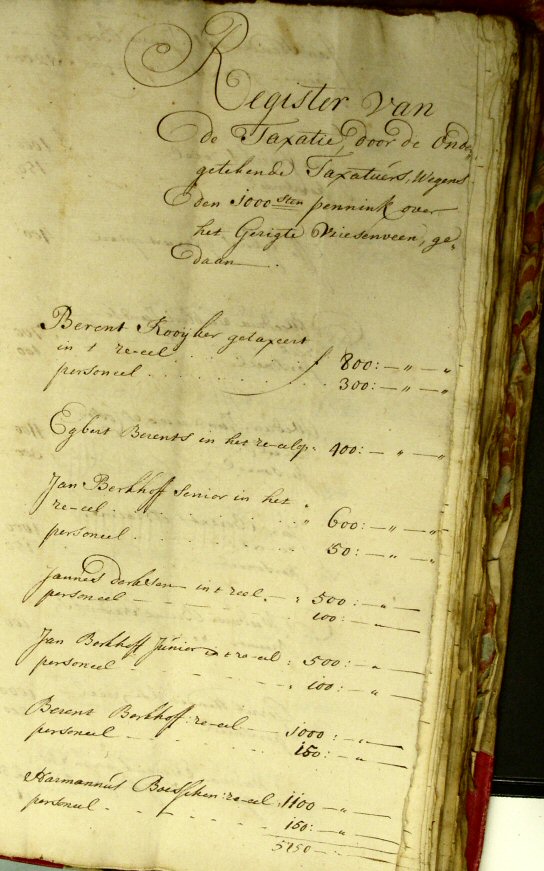 Register van
de Taxatie, door de Ond-
getekende Taxatuérs, Wegens
den 1000sten pennink over
het Gerigte Vriesenveen, ge-
daan.
Berent Kooijker getaxeert
in t re-eel . . . f 800: — " — "
personeel . . . 300: — " — "
Egbert Berents in het re-eel " 400: — " — "
Jan Berkhoff Senior in het
re-eel . . . " 600: — " — "
personeel . . . 50: — " — "
Jannes derksen in t reel — " 500: — " —
personeel — — — 100: — " —
Jan Berkhoff Junior in t re-eel : 500: — " —
personeel — — — " 100: — " —
Berent Berkhoff: re-eel — 1000: — " —
personeel — — — 150: — " —
Harmannus : re-eel : 1100 — " —
personeel — — — 150: — " —
5750 —